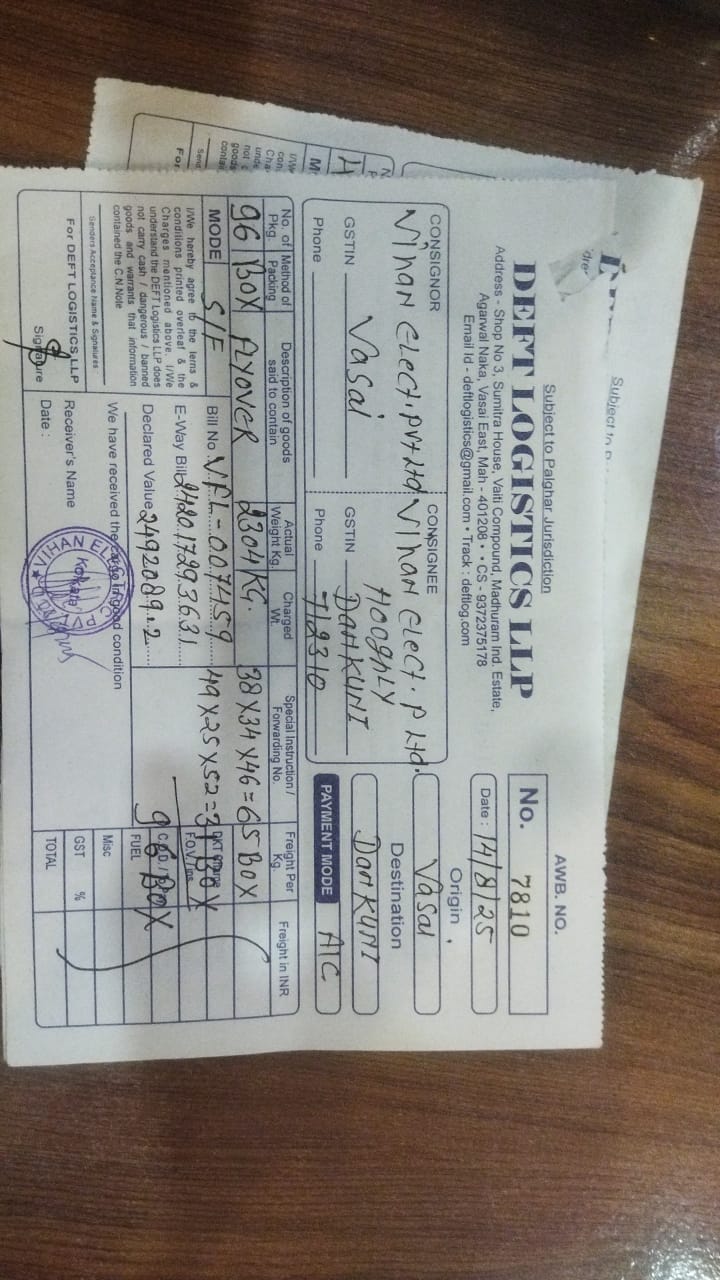 Subject to Palghar Jurisdiction
DEFT LOGISTICS LLP
Address - Shop No 3, Sumitra House, Vaiti Compound, Madhuram Ind. Estate,
Agarwal Naka, Vasai East, Mah - 401208 • • CS - 9372375178
Email Id - deftlogistics@gmail.com • Track : deftlog.com
AWB. NO.
No. 7810
Date : 14/8/25
CONSIGNOR
Vihan Elect. Pvt Ltd.
Vasai
GSTIN
Phone
CONSIGNEE
Vihan Elect. P Ltd.
HOOGHLY
GSTIN DANKUNI
Phone 712310
Origin
Vasai
Destination
DANKUNI
PAYMENT MODE A/C
No. of Pkg. Method of Packing Description of goods said to contain Actual Weight Kg. Charged Wt. Special Instruction / Forwarding No. Freight Per Kg Freight in INR
96 BOX FLYOVER 2304 KG. 38X34X46=65 BOX
49X25X52=31 BOX
96 BOX
MODE S/F
Bill No. VFL-007459
E-Way Bill 242017293631
Declared Value 2492089.2
F.O.V/Ins
FUEL
Misc
GST %
TOTAL
I/We hereby agree to the terns &
conditions printed overleaf & the
Charges mentioned above. I/We
understand the DEFT Logistics LLP does
not carry cash / dangerous / banned
goods and warrants that information
contained the C.N.Note
Senders Acceptance Name & Signatures
For DEFT LOGISTICS LLP
Signature
We have received the cargo in good condition
Receiver's Name
Date :
VIHAN ELEC
PV
Kolkata
Subject to